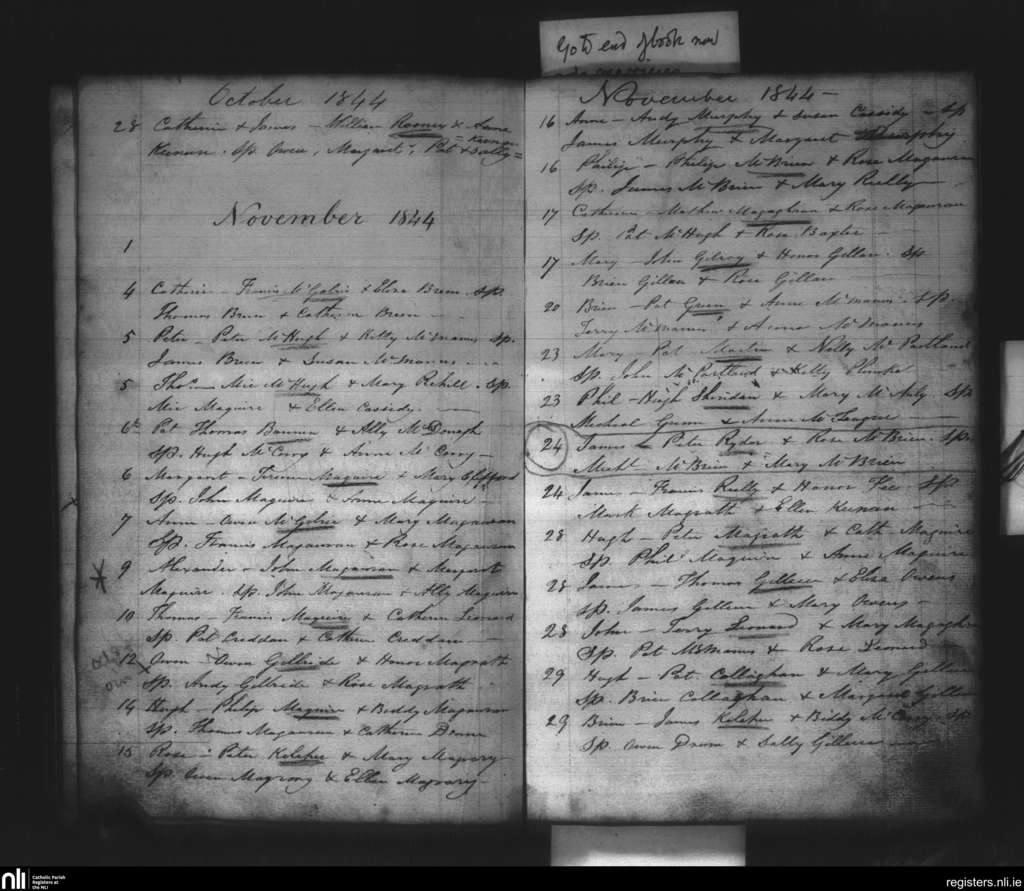 Go to end of book now
October 1844
28 Catherin & James – William Rooney & Anne
Keenan
Keenan. Sp. Owen, Margaret, Pat & Sally
November 1844
1
4 Catherin – Francis McGolric & Eliza Breen Sp.
Thomas Breen & Catherin Breen –
5 Peter – Peter McHugh & Kitty McManus Sp.
James Breen & Susan McManus
5 Thos. – Mic McHugh & Mary Rehill. Sp.
Mic Maguire & Ellen Cassedy. –
6th Pat Thomas Bannon & Ally McDonagh
Sp. Hugh McCorry & Anne McCorry –
6 Margaret – Maguire & Mary Clifford
Sp. John Maguire & Anne Maguire
7 Anne – Owen McGolric & Mary Magauran
Sp. Francis Magauran & Rose Magauran
9 Alexander – John Magauran & Margaret
Maguire. Sp. John Magauran & Ally Maguire
10 Thomas – Francis Maguire & Catherin Leonard
Sp Pat Creddan & Catherin Creddan –
12 Owen – Owen Gillride & Honor Magrath
Sp. Andy Gillride & Rose Magrath
14 Hugh – Philip Maguire & Biddy Magauran
Sp. Thomas Magauran & Catherin Drum
15 Rose – Peter Keleher & Mary Magrory
Sp. Owen Magrory & Ellen Magrory –
November 1844 –
16 Anne – Andy Murphy & Susan Cassidy – Sp
James Murphy & Margaret Murphy
16 Philip – Philip McBrien & Rose Magauran
Sp. James McBrien & Mary Reilly –
17 Catherin – Mathew Magaghran & Rose Magauran
Sp. Pat McHugh & Rose Baxter –
17 Mary – John Gilroy & Honor Gillan. Sp
Brien Gillan & Rose Gillan
20 Brien – Pat Green & Anne McManus. Sp.
Terry McManus & Anne McManus
23 Mary Pat Martin & Nelly McPartland
Sp. John McPartland & Kelly
23 Phil – Hugh Sheridan & Mary McAuly. Sp.
Micheal Green & Anne McTeague –
24 James – Peter Ryder & Rose McBrien. Sp.
Michl. McBrien & Mary McBrien
24 James – Francis Reilly & Honor Fee – Sp
Mark Magrath & Ellen Keenan –
28 Hugh – Peter Magrath & Cath Maguire
Sp Phil Maguire & Anne Maguire
28 James – Thomas Gilleece & Eliza Owens
Sp. James Gilleece & Mary Owens –
28 John – Terry Leonard & Mary Magaghran
Sp. Pat McManus & Rose Leonard
29 Hugh – Pat Callaghan & Mary Gilleece
Sp. Brien Callaghan & Margaret Gilleece
29 Brien – James Keleher & Biddy McCorry. Sp
Sp. Owen Drum & Sally Gilleece –
nli
Catholic Parish
Registers at
the NLI
registers.nli.ie